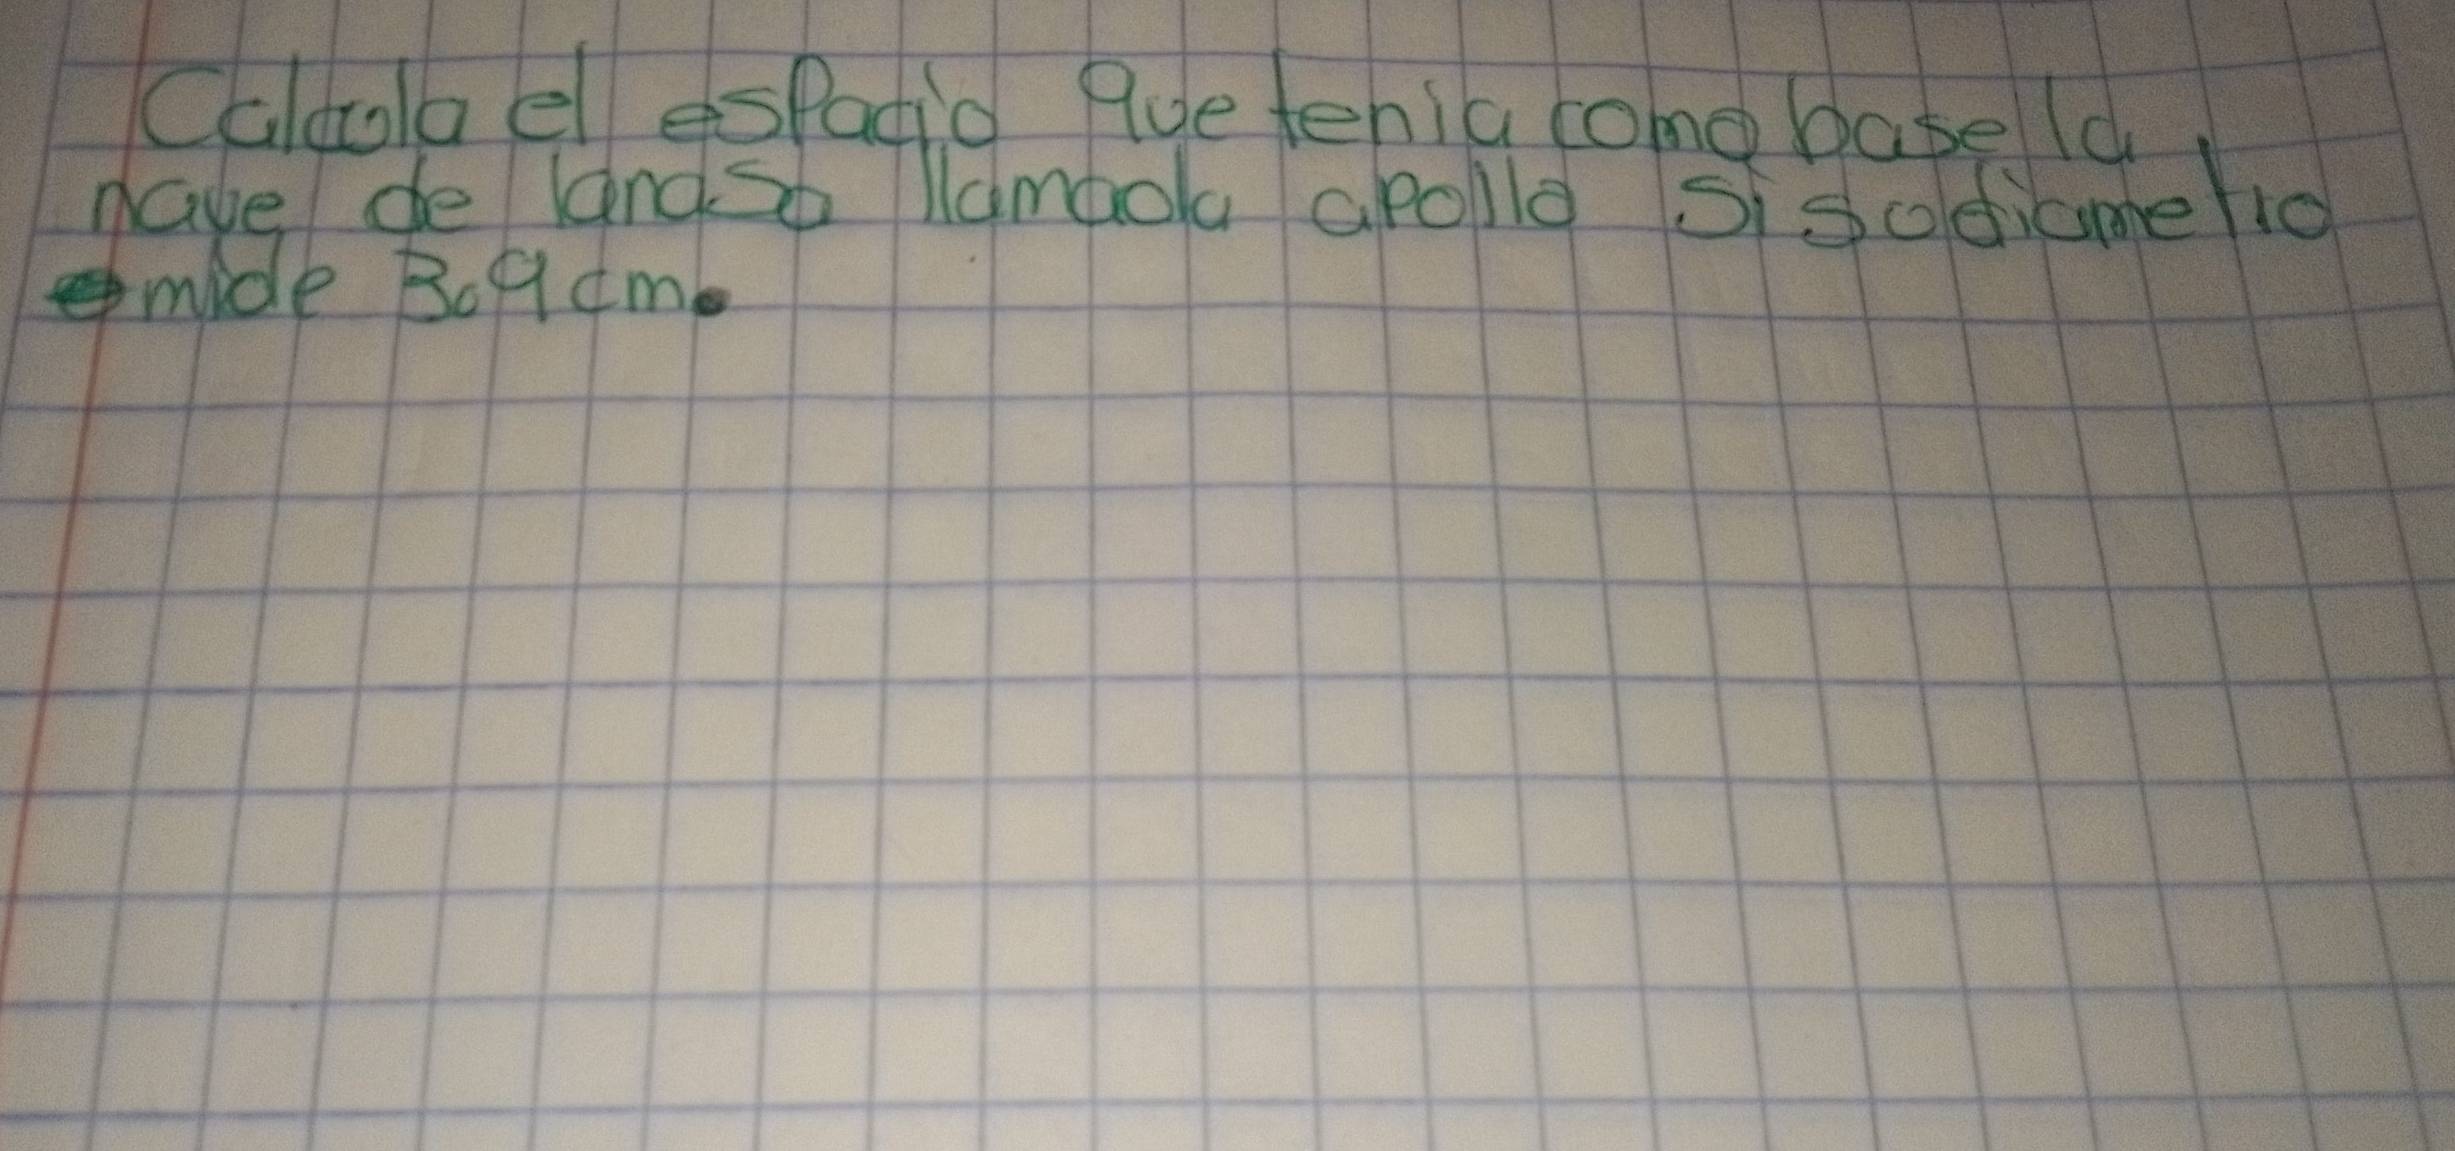 Calcula el espacio que tenia como base la
nave de landso llamada apollo si so diametro
mide 3.9 cm.